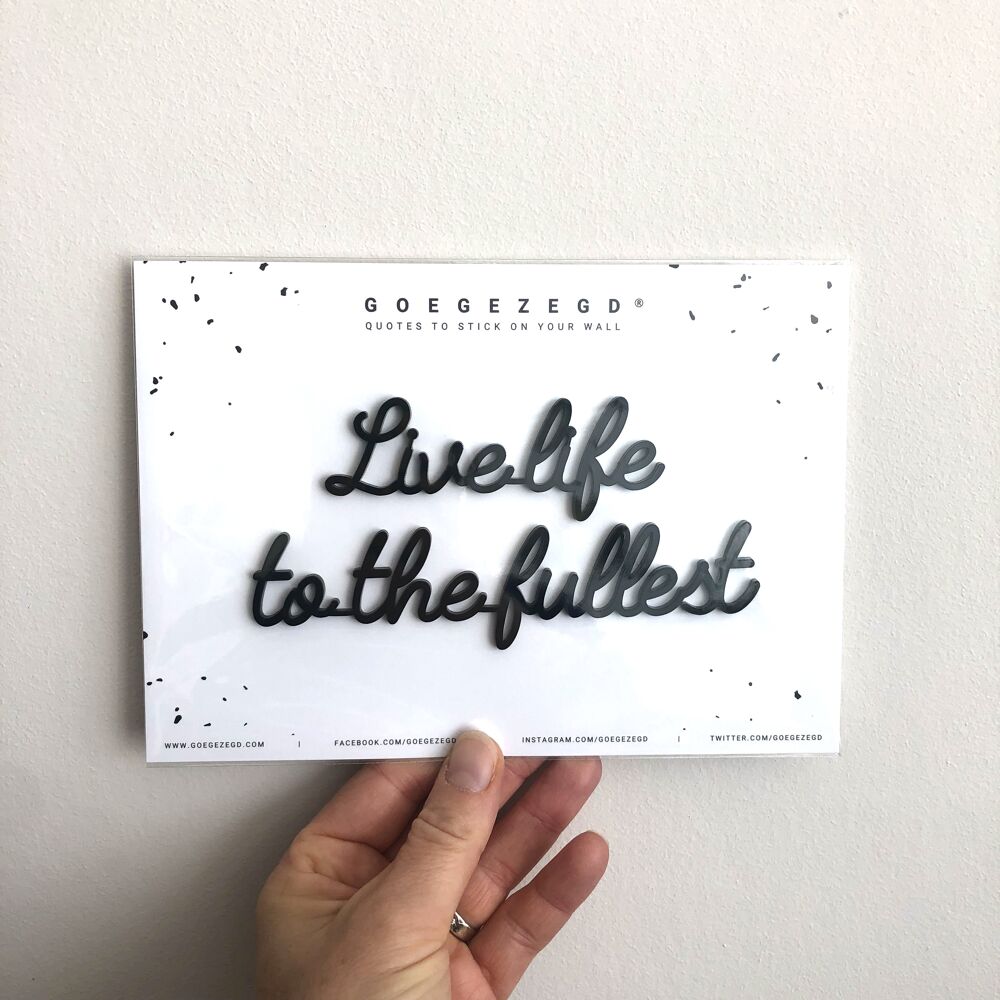 GOEGEZEGD®
QUOTES TO STICK ON YOUR WALL
Live life
to the fullest
WWW.GOEGEZEGD.COM | FACEBOOK.COM/GOEGEZEG INSTAGRAM.COM/GOEGEZEGD | TWITTER.COM/GOEGEZEGD